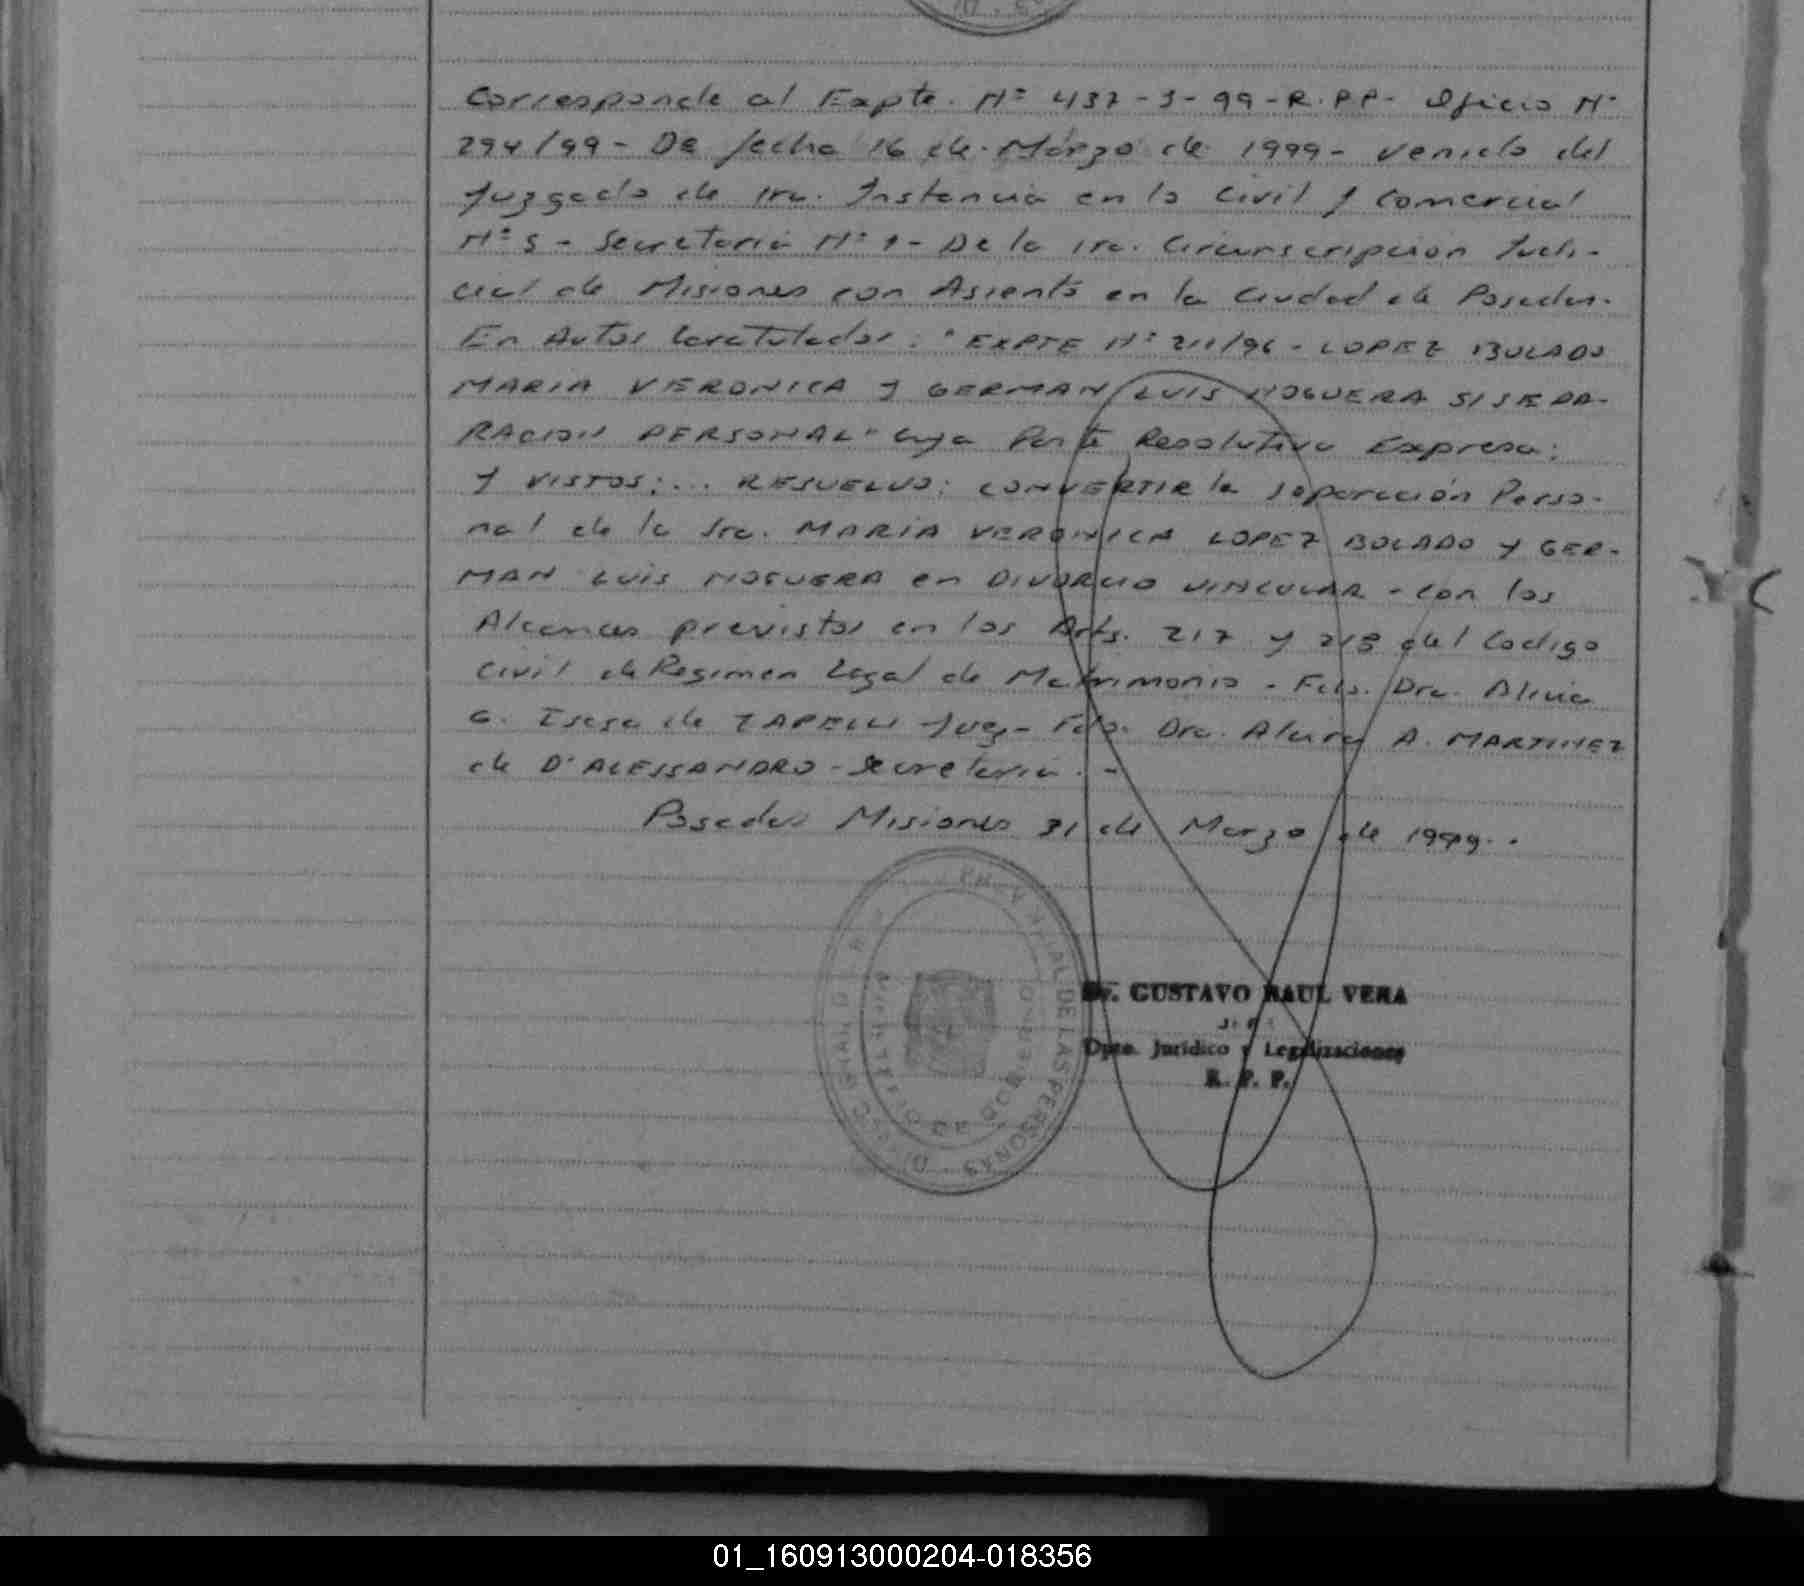 Corresponde al Expte. Nº 437-S-99-R.P.P- Oficio Nº
294/99- De fecha 16 de Marzo de 1999- venido del
Juzgado de 1ra. Instancia en lo Civil y Comercial
Nº 5- Secretaria Nº 1- De la 1ra. Circunscripcion Judi-
cial de Misiones con Asiento en la Ciudad de Posadas.
En Autos Caratulados: "EXPTE Nº 211/96- LOPEZ BOLADO
MARIA VERONICA Y GERMAN LUIS NOGUERA S/SEPA-
RACION PERSONAL" cuya Parte Resolutiva Expresa:
Y VISTOS:... RESUELVO: CONVERTIR la separación Perso-
nal de la Sra. MARIA VERONICA LOPEZ BOLADO Y GER-
MAN LUIS NOGUERA en DIVORCIO VINCULAR - con los
Alcances previstos en los Arts. 217 y 218 del Codigo
Civil de Regimen Legal de Matrimonio - Fdo. Dra.
de ZAPELLI Juez- Fdo. Dra. A. MARTINEZ
de D'ALESSANDRO- Secretaria.-
Posadas Misiones 31 de Marzo de 1999..
PROVINCIAL DE LAS PERSONAS
MINISTERIO DE GOBIERNO
Dr. GUSTAVO RAUL VERA
JEFE
Dpto. Jurídico y Legalizaciones
R. P. P.
01_160913000204-018356